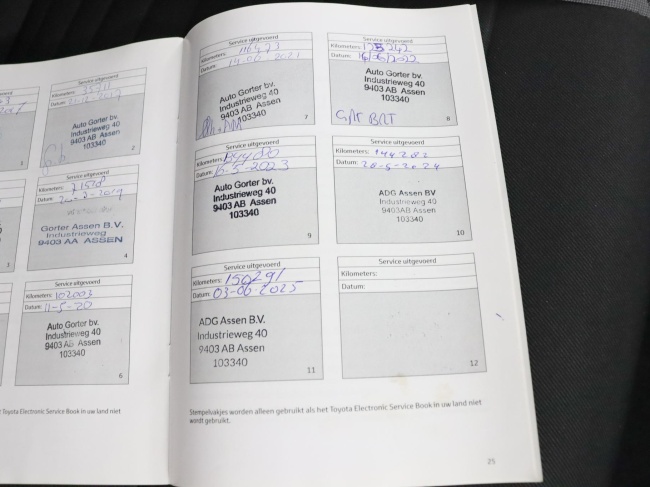 Service uitgevoerd
Kilometers:
Datum:
Auto Gorter bv.
Industrieweg 40
9403 AB Assen
103340
2
1
Kilometers: 71518
Datum:
Gorter Assen B.V.
Industrieweg
9403 AA ASSEN
4
3
Service uitgevoerd
Kilometers: 102003
Datum: 11-5-20
Auto Gorter bv.
Industrieweg 40
9403 AB Assen
103340
6
Toyota Electronic Service Book in uw land niet
Service uitgevoerd
Kilometers: 116473
Datum:
Auto Gorter bv.
Industrieweg 40
9403 AB Assen
103340
7
Service uitgevoerd
Kilometers:
Datum:
Auto Gorter bv.
Industrieweg 40
9403 AB Assen
103340
8
Service uitgevoerd
Kilometers:
Datum: 16-5-2023
Auto Gorter bv.
Industrieweg 40
9403 AB Assen
103340
9
Service uitgevoerd
Kilometers: 144282
Datum: 28-5-2024
ADG Assen BV
Industrieweg 40
9403AB Assen
103340
10
Service uitgevoerd
Kilometers: 150291
Datum: 03-06-2025
ADG Assen B.V.
Industrieweg 40
9403 AB Assen
103340
11
Service uitgevoerd
Kilometers:
Datum:
12
Stempelvakjes worden alleen gebruikt als het Toyota Electronic Service Book in uw land niet
wordt gebruikt.
25